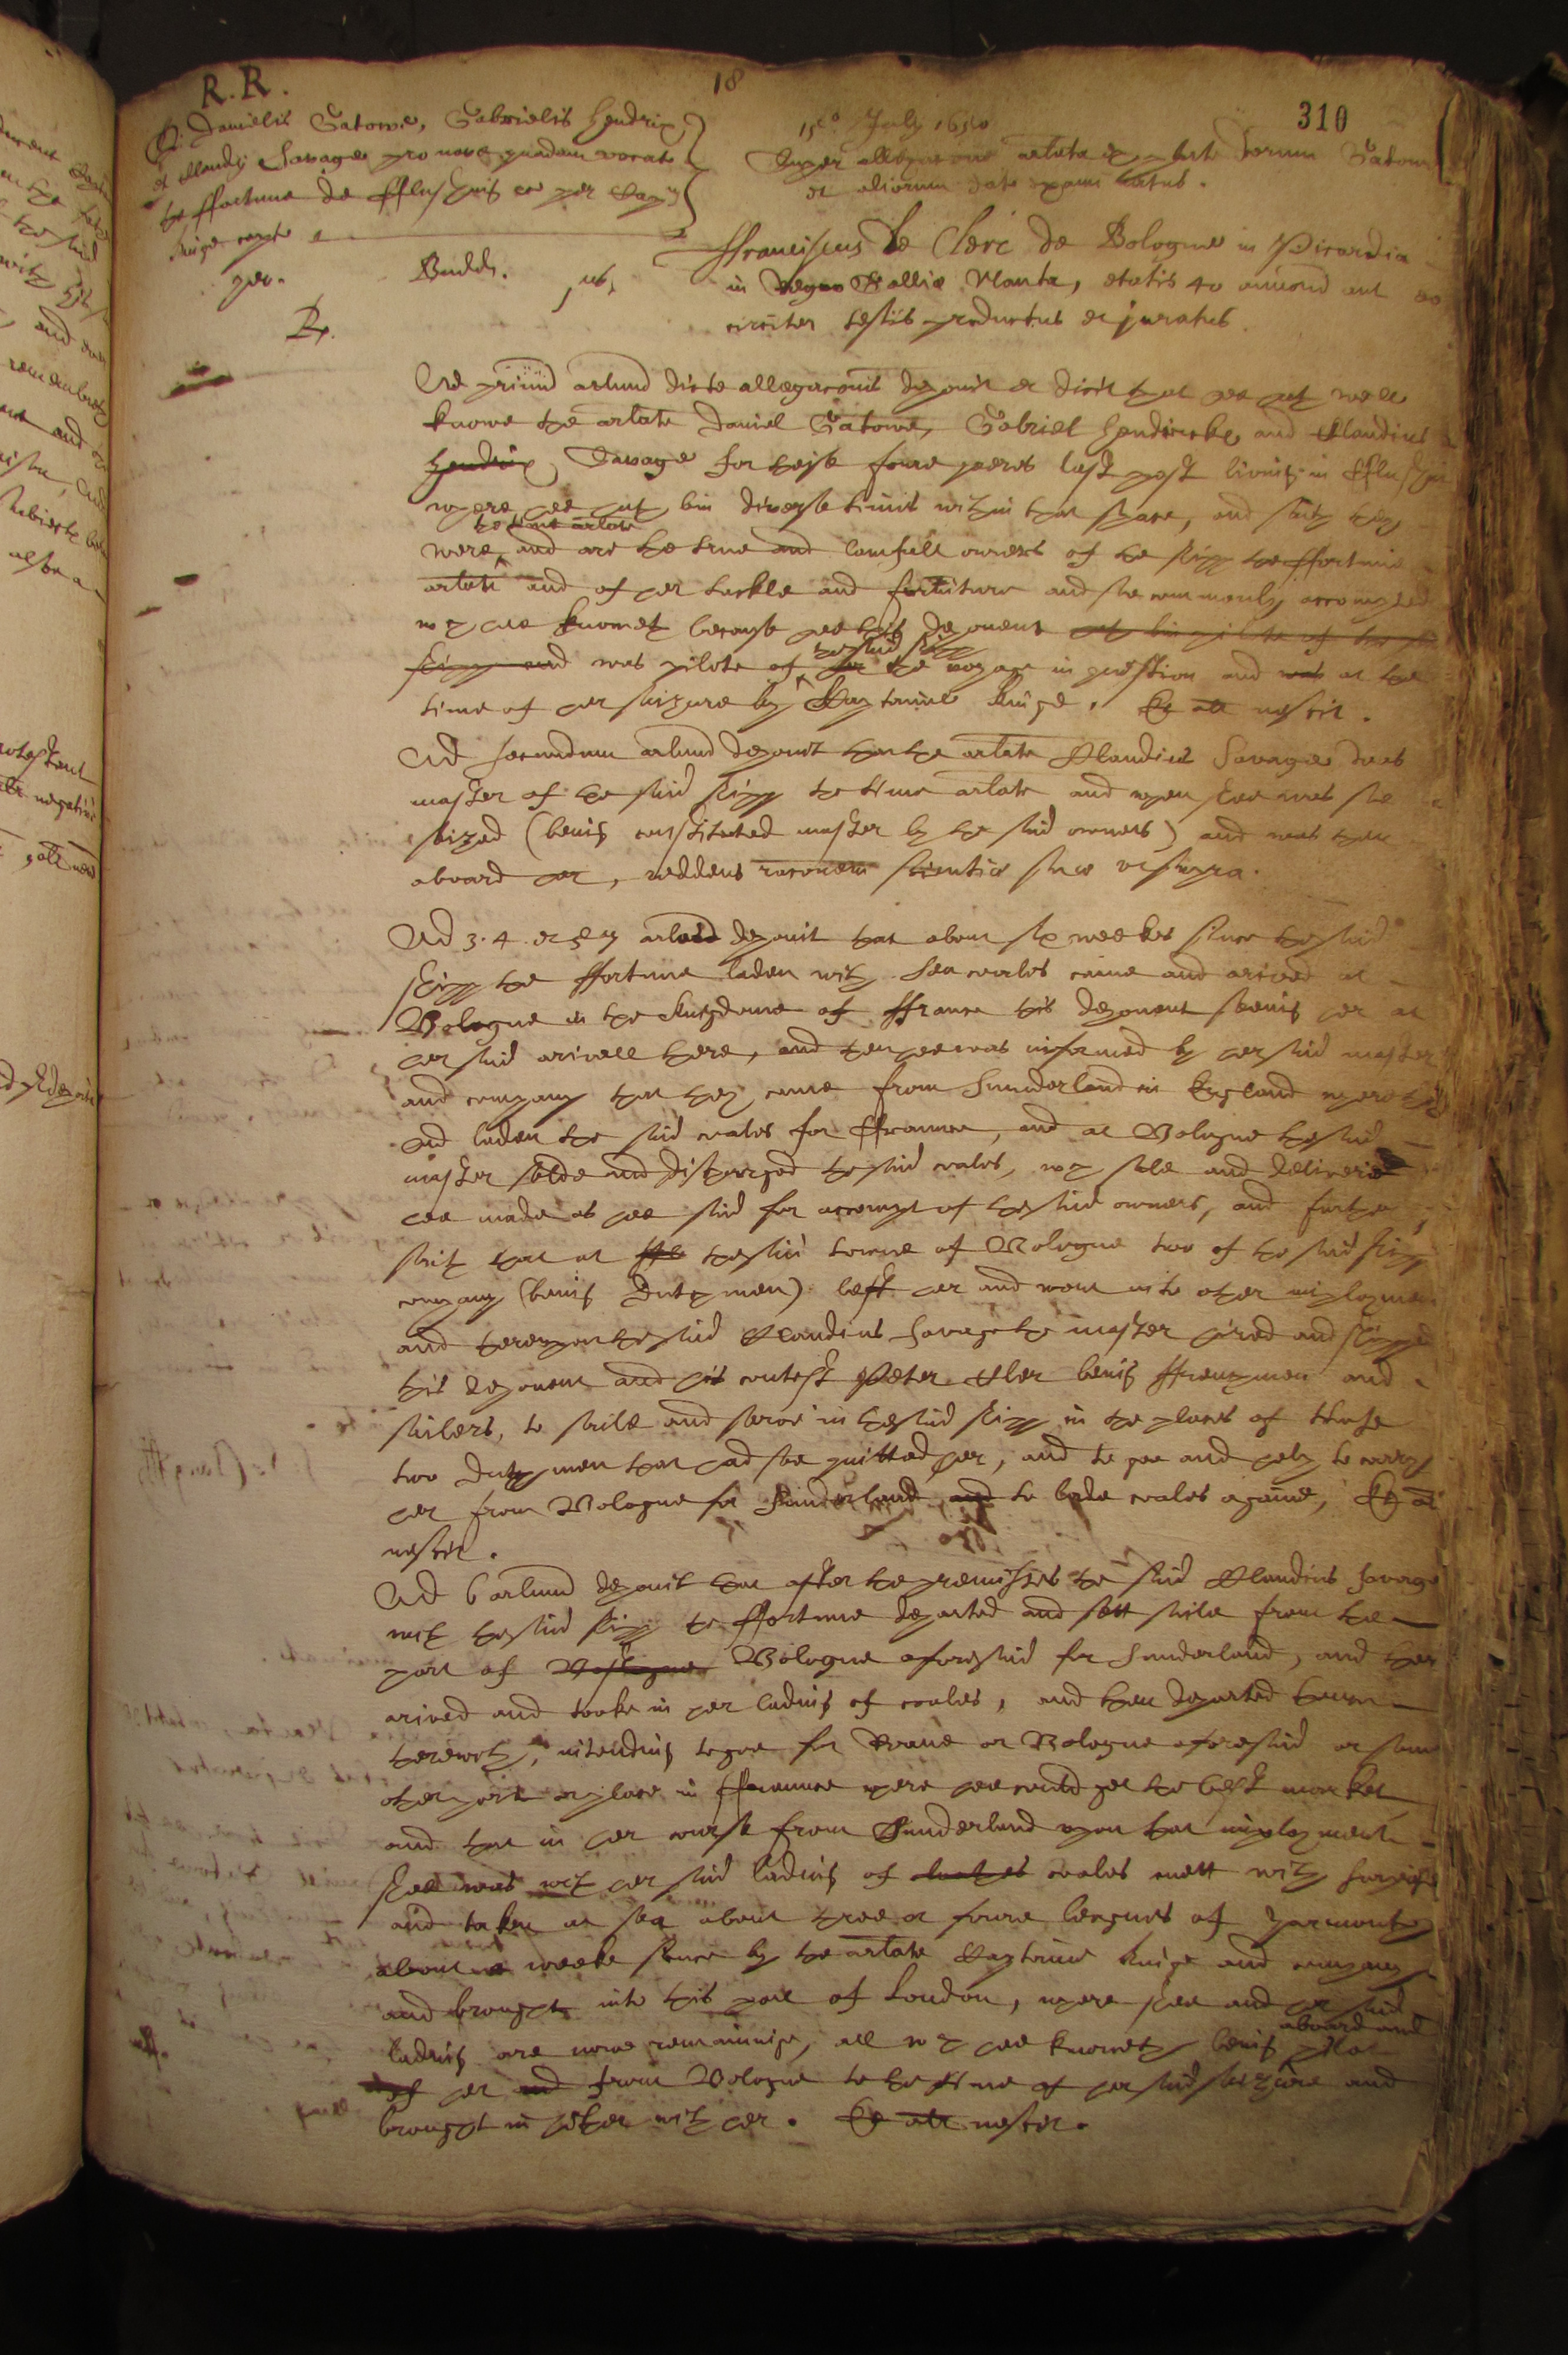 R. R.
18
310
Danielis Gatowe, Gabrielis Hendrix,
et Claudij Savage pro nave quadam vocat
the ffortune de fflushing ca per Cap
Kinge capt
per.
Budd.
Rp.
15to July 1650
Super allegacone arlata ex parte dcorum Gatowe
et aliorum dat exam natus.
ffranciscus Le Clerc de Bologne in Picardia
in regno Galliæ Nauta, ætatis 40 annord aut eo
circiter testis productus et juratus.
Ad primum arlum dicte allegaconis deponit et dicit that hee hath well
knowe the arlate Daniel Gatowe, Gabriel Hendricke and Claudius
Hendrix Savage for these foure yeares last past living in fflushing
where hee hath bin diverse times within that space, and saith they
the time arlate
were and are the true and lawfull owners of the shipp the ffortune
arlate and of her tackle and furniture and soe commonly accompted
wch hee knoweth because hee this deponent hath bin pilote of the sd
the said shipp
shipp and was pilote of her the voyage in question and was at the
time of her seizure by Captaine Kinge. Et alr nescit.
Ad secundum arlum deponit that the arlate Claudius Savage was
master of the said shipp the time arlate and when shee was soe
seized (being constituted master by the said owners) and was then
aboard her, reddens raconem scientiæ suæ ut supra.
Ad 3. 4. et 5 arlos deponit that about six weekes since the said
shipp the ffortune laden with sea coales came and arived at
Bologne in the kingdome of ffrance this deponent seeing her at
her said arivall there, and then hee was informed by her said master
and company that they came from Sunderland in England where they
had laden the said coales for ffrance, and at Bologne the said
master solde and discharged the said coales, wch sale and deliverie
hee made as hee said for accompt of the said owners, and further
saith that at the said towne of Bologne two of the said shipps
company (being Dutchmen) left her and went into other imployment
and thereupon the said Claudius Savage the master hired and shipped
this deponent and his contest Peter Cler being ffrenchmen and
sailers, to saile and serve in the said shipp in the places of those
two Dutchmen that had soe quitted her, and to goe and help to carry
her from Bologne for Sunderland and to lade coales againe, Et alr
nescit.
Ad 6 arlum deponit that after the premisses the said Claudius Savage
with the said shipp the ffortune departed and sett saile from the
port of Bologne aforesaid for Sunderland, and there
arived and tooke in her lading of coales, and then departed thence
therewith, intending to goe for Roane or Bologne aforesaid or some
other port or place in ffrance where hee could get the best market
and that in her course from Sunderland upon that imployment
shee was with her said lading of coales mett with surprised
and taken at sea about three or foure leagues of Yarmouth
about a weeke since by the arlate Captaine Kinge and company
and brought into this port of London, where shee and her said
aboard and
lading are nowe remaininge, all wch hee knoweth being pilot
of her and from Bologne to the time of her said seizure and
brought in hither with her. Et alr nescit.